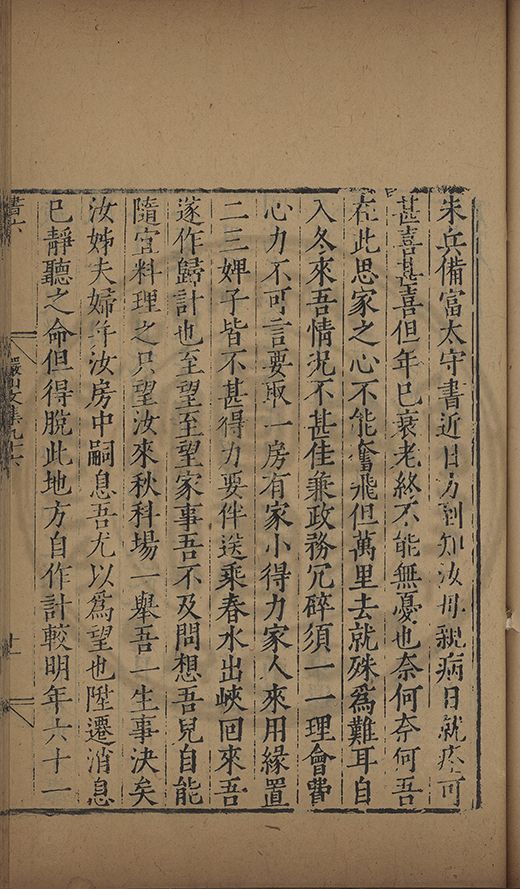 朱兵備富太守書近日方到知汝母親病日就痊可
甚喜甚喜但年已衰老終不能無憂也奈何奈何吾
在此思家之心不能奮飛但萬里去就殊爲難耳自
入冬來吾情況不甚佳兼政務冗碎須一一理會費
心力不可言要取一房有家小得力家人來用緣置
二三婢子皆不甚得力要伴送乘春水出峽回來吾
遂作歸計也至望至望家事吾不及問想吾兒自能
隨宜料理之只望汝來秋科場一舉吾一生事決矣
汝姊夫婦并汝房中嗣息吾尤以爲望也陞遷消息
已靜聽之命但得脫此地方自作計較明年六十一
書六
儼山文集九十六
十一